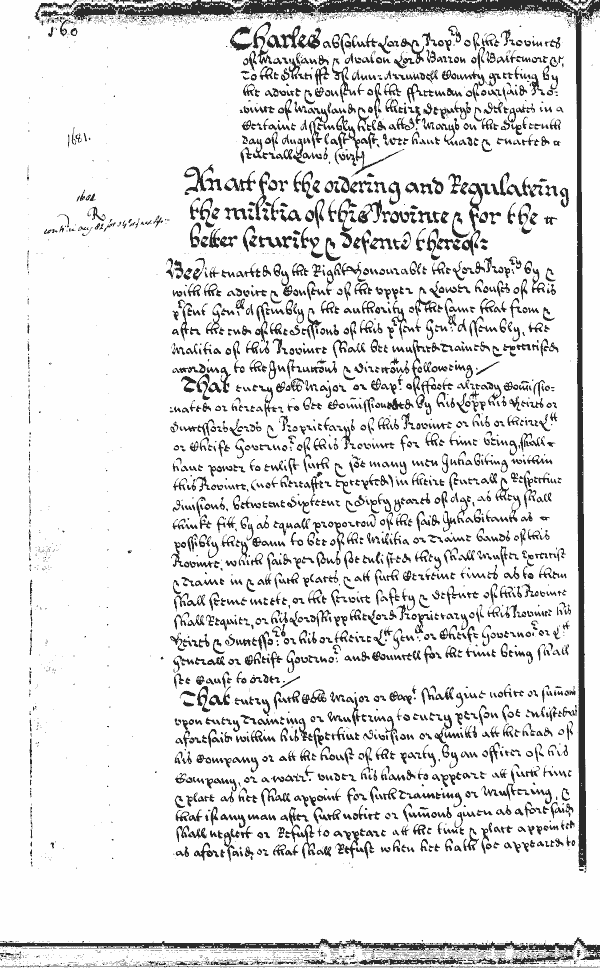 160
Charles absolute Lord & Prop.ry of the Provinces
of Maryland & Avalon Lord Barron of Baltemore &c.
To the Sheriffe of Ann Arrundell County greeting by
the advice & Consent of the ffreemen of our said Pro-
vince of Maryland & of theire Deputys & Delegates in a
Certaine Assembly held att St. Marys on the Sixteenth
day of August last past, Wee have made & enacted
severall Laws, (vizt)
1681.
An act for the ordering and Regulateing
the militia of this Province & for the
better security & defence thereof:
1681
Bee itt enacted by the Right Honourable the Lord Prop.ry by &
with the advice & Consent of the upper & Lower houses of this
p.rsent Gen.ll Assembly & the authority of the same that from &
after the end of the Sessions of this p.rsent Gen.ll Assembly, the
Malitia of this Province shall bee mustred Trained & exercised
according to the Instructons & Directons following;
That every Coll.o Major or Cap.t of ffoote already Comissio-
nated or hereafter to bee Comissionated by his Lopp his Heires or
Successors Lords & Proprietarys of this Province or his or theire L.tt
or Cheife Governo.r of this Province for the time being, shall
have power to enlist such & soe many men Inhabiting within
this Province, (not hereafter excepted) in theire severall & Respective
divisions, betweene Sixteene & Sixty yeares of Age, as they shall
thinke fitt, by as equall proporcon of the said Inhabitants as
possibly they Cann to bee of the Militia or Traine bands of this
Province, which said persons soe enlisted they shall Muster Exercise
& Traine in & att such places, & att such Certeine times as to them
shall seeme meete, or the service safety & defence of this Province
shall Require, or his Lordshipp the Lord Proprietary of this Province his
Heires & Successo.rs or his or theire L.tt Gen.ll or Cheife Governo.r or L.tt
Generall or Cheife Governo.r and Councell for the time being shall
see Cause to order;
That every such Coll.o Major or Cap.t shall give notice or sumons
upon every Traineing or Mustering to every person soe enlisted as
aforesaid within his Respective Division or Limitts att the head of
his Company or att the house of the party, by an officer of his
Company, or a warr.t under his hand to appeare att such time
& place as hee shall appoint for such Traineing or Mustering, &
that if any man after such notice or sumons given as aforesaid
shall neglect or Refuse to appeare att the time & place appointed
as aforesaid; or that shall Refuse when hee hath soe appeared to